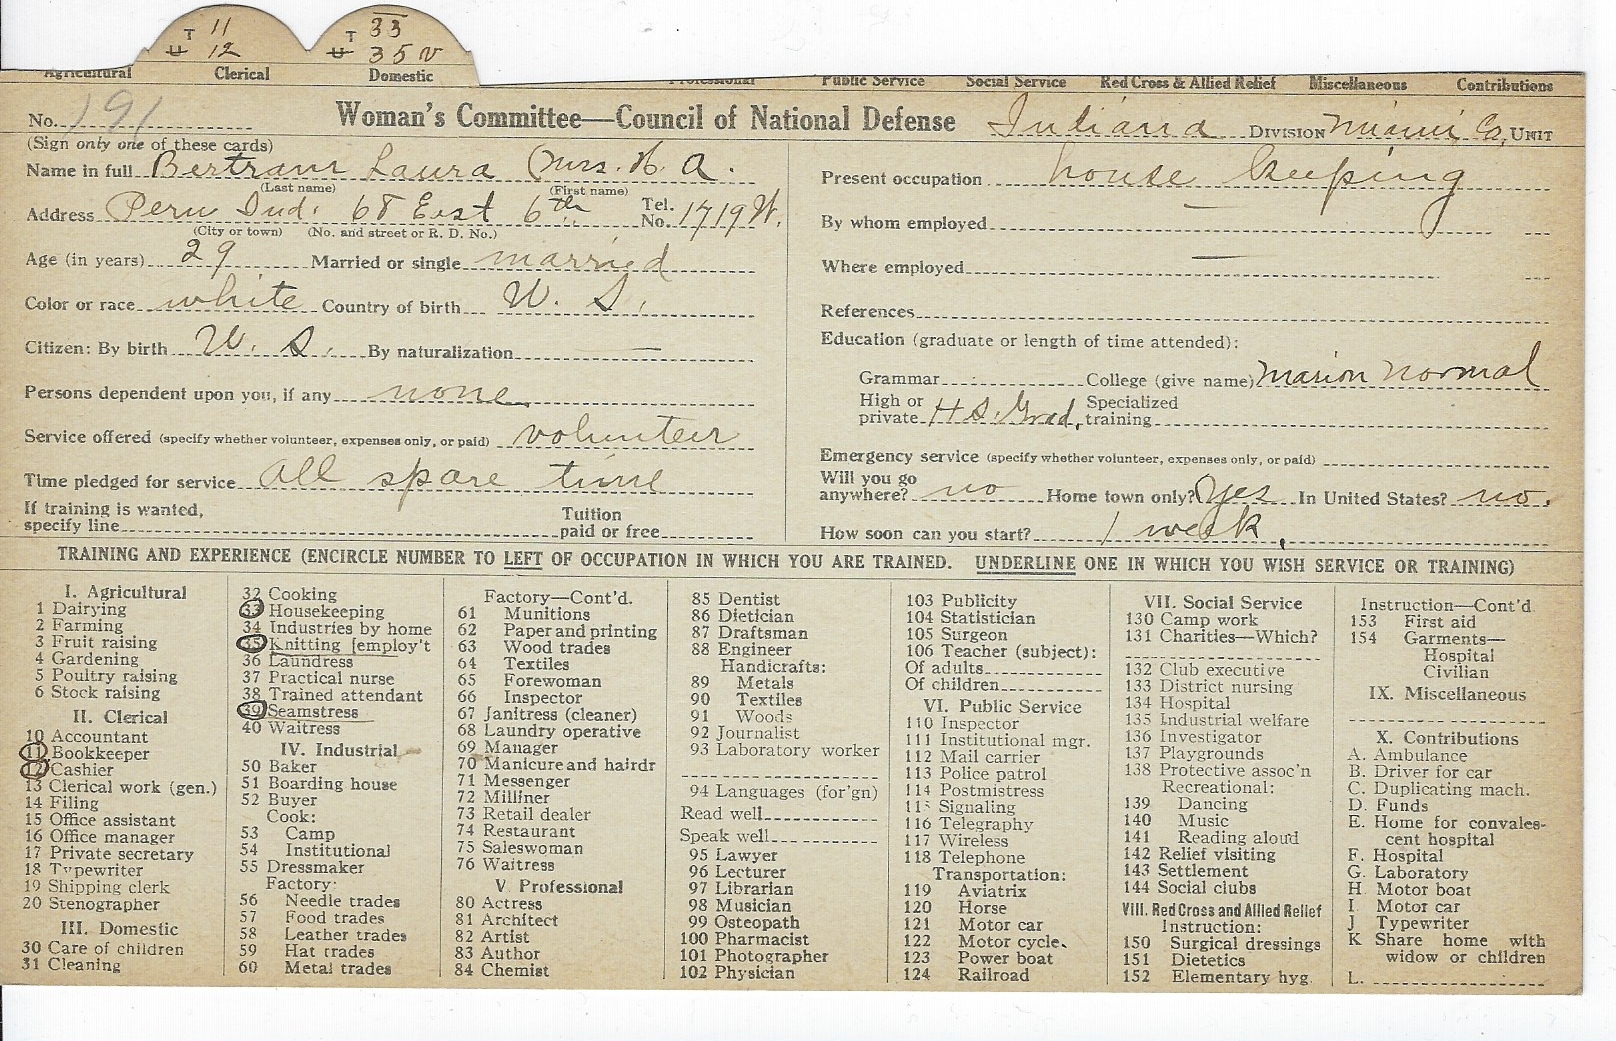 T 11
U 12
T 33
U 35 v
Agricultural Clerical Domestic Professional Public Service Social Service Red Cross & Allied Relief Miscellaneous Contributions
No. 191 Woman's Committee—Council of National Defense Indiana Division Miami Co. Unit
(Sign only one of these cards)
Name in full Bertram Laura (Mrs. H. A.
(Last name) (First name)
Address Peru Ind. 68 East 6th Tel. No. 1719 W.
(City or town) (No. and street or R. D. No.)
Age (in years) 29 Married or single married
Color or race white Country of birth U. S.
Citizen: By birth U. S. By naturalization —
Persons dependent upon you, if any none
Service offered (specify whether volunteer, expenses only, or paid) volunteer
Time pledged for service all spare time
If training is wanted, specify line Tuition paid or free
Present occupation house keeping
By whom employed —
Where employed —
References
Education (graduate or length of time attended):
Grammar College (give name) Marion Normal
High or private H. S. Grad. Specialized training
Emergency service (specify whether volunteer, expenses only, or paid)
Will you go anywhere? no Home town only? Yes In United States? no.
How soon can you start? 1 week.
TRAINING AND EXPERIENCE (ENCIRCLE NUMBER TO LEFT OF OCCUPATION IN WHICH YOU ARE TRAINED. UNDERLINE ONE IN WHICH YOU WISH SERVICE OR TRAINING)
I. Agricultural
1 Dairying
2 Farming
3 Fruit raising
4 Gardening
5 Poultry raising
6 Stock raising
II. Clerical
10 Accountant
11 Bookkeeper
12 Cashier
13 Clerical work (gen.)
14 Filing
15 Office assistant
16 Office manager
17 Private secretary
18 Typewriter
19 Shipping clerk
20 Stenographer
III. Domestic
30 Care of children
31 Cleaning
32 Cooking
33 Housekeeping
34 Industries by home
35 Knitting [employ't
36 Laundress
37 Practical nurse
38 Trained attendant
39 Seamstress
40 Waitress
IV. Industrial
50 Baker
51 Boarding house
52 Buyer
Cook:
53 Camp
54 Institutional
55 Dressmaker
Factory:
56 Needle trades
57 Food trades
58 Leather trades
59 Hat trades
60 Metal trades
Factory—Cont'd.
61 Munitions
62 Paper and printing
63 Wood trades
64 Textiles
65 Forewoman
66 Inspector
67 Janitress (cleaner)
68 Laundry operative
69 Manager
70 Manicure and hairdr
71 Messenger
72 Milliner
73 Retail dealer
74 Restaurant
75 Saleswoman
76 Waitress
V. Professional
80 Actress
81 Architect
82 Artist
83 Author
84 Chemist
85 Dentist
86 Dietician
87 Draftsman
88 Engineer
Handicrafts:
89 Metals
90 Textiles
91 Woods
92 Journalist
93 Laboratory worker
94 Languages (for'gn)
Read well
Speak well
95 Lawyer
96 Lecturer
97 Librarian
98 Musician
99 Osteopath
100 Pharmacist
101 Photographer
102 Physician
103 Publicity
104 Statistician
105 Surgeon
106 Teacher (subject):
Of adults
Of children
VI. Public Service
110 Inspector
111 Institutional mgr.
112 Mail carrier
113 Police patrol
114 Postmistress
115 Signaling
116 Telegraphy
117 Wireless
118 Telephone
Transportation:
119 Aviatrix
120 Horse
121 Motor car
122 Motor cycle.
123 Power boat
124 Railroad
VII. Social Service
130 Camp work
131 Charities—Which?
132 Club executive
133 District nursing
134 Hospital
135 Industrial welfare
136 Investigator
137 Playgrounds
138 Protective assoc'n
Recreational:
139 Dancing
140 Music
141 Reading aloud
142 Relief visiting
143 Settlement
144 Social clubs
VIII. Red Cross and Allied Relief
Instruction:
150 Surgical dressings
151 Dietetics
152 Elementary hyg.
Instruction—Cont'd
153 First aid
154 Garments—
Hospital
Civilian
IX. Miscellaneous
X. Contributions
A. Ambulance
B. Driver for car
C. Duplicating mach.
D. Funds
E. Home for convales-
cent hospital
F. Hospital
G. Laboratory
H. Motor boat
I. Motor car
J Typewriter
K Share home with
widow or children
L.